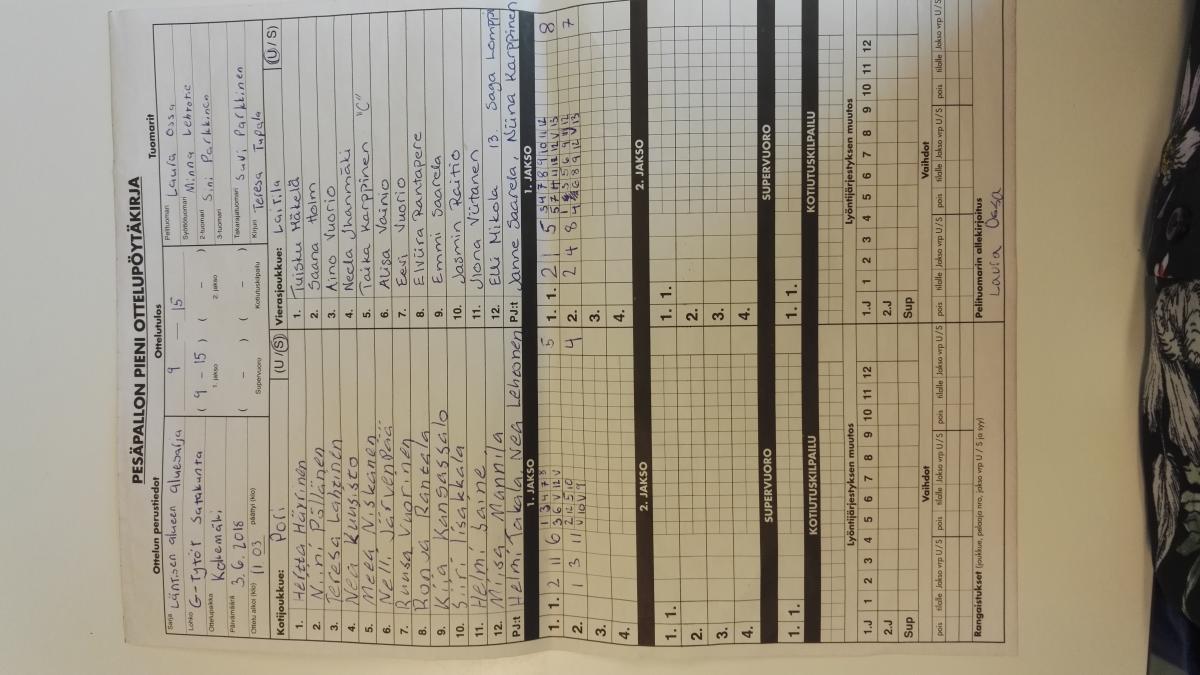 PESÄPALLON PIENI OTTELUPÖYTÄKIRJA
Ottelun perustiedot Ottelutulos Tuomarit
Sarja Läntisen alueen aluesarja 9 — 15 Pelituomari Laura Ossa
Lohko G-Tytöt Satakunta ( 9 - 15 ) ( - ) Syöttötuomari Minna Lehtonen
1. jakso 2. jakso 2-tuomari Sini Parkkinen
Ottelupaikka Kokemäki 3-tuomari
Päivämäärä 3.6.2018 ( - ) ( - ) Takarajatuomari Suvi Parkkinen
Ottelu alkoi (klo) 11 03 päättyi (klo) Supervuoro Kotiutuskilpailu Kirjuri Teresa Tupala
Kotijoukkue: Pori (U / S) Vierasjoukkue: Laitila (U / S)
1. Herttta Härrinen 1. Tuisku Mäkelä
2. Niini Pöllänen 2. Saana Holm
3. Teresa Lahtinen 3. Aino Vuorio
4. Nea Kuusisto 4. Neela Jhanmäki
5. Meea Niskanen 5. Taika Karppinen "C"
6. Nelli Järvenpää 6. Alisa Vainio
7. Ruusa Vuorinen 7. Eevi Vuorio
8. Ronja Rantala 8. Elviira Rantapere
9. Kiia Kansassalo 9. Emmi Saarela
10. Siiri Iisakkala 10. Jasmin Raitio
11. Helmi Laine 11. Ilona Virtanen
12. Miisa Mannila 12. Elli Mikola 13. Saga Lamppu
PJ:t Helmi Takala, Nea Lehtonen PJ:t Janne Saarela, Niina Karppinen
1. JAKSO 1. JAKSO
1. 1. 2 11 6 5 1. 1. 2 1 5 8
2. 1 3 11 4 2. 2 4 8 7
3. 3.
4. 4.
2. JAKSO 2. JAKSO
1. 1. 1. 1.
2. 2.
3. 3.
4. 4.
SUPERVUORO SUPERVUORO
1. 1. 1. 1.
KOTIUTUSKILPAILU KOTIUTUSKILPAILU
Lyöntijärjestyksen muutos Lyöntijärjestyksen muutos
1.J 1 2 3 4 5 6 7 8 9 10 11 12 1.J 1 2 3 4 5 6 7 8 9 10 11 12
2.J 2.J
Sup Sup
Vaihdot Vaihdot
pois tilalle Jakso vrp U / S pois tilalle Jakso vrp U / S pois tilalle Jakso vrp U / S pois tilalle Jakso vrp U / S pois tilalle Jakso vrp U / S pois tilalle Jakso vrp U / S
Rangaistukset (joukkue, pelaaja nro, jakso vrp U / S ja syy) Pelituomarin allekirjoitus
Laura Ossa